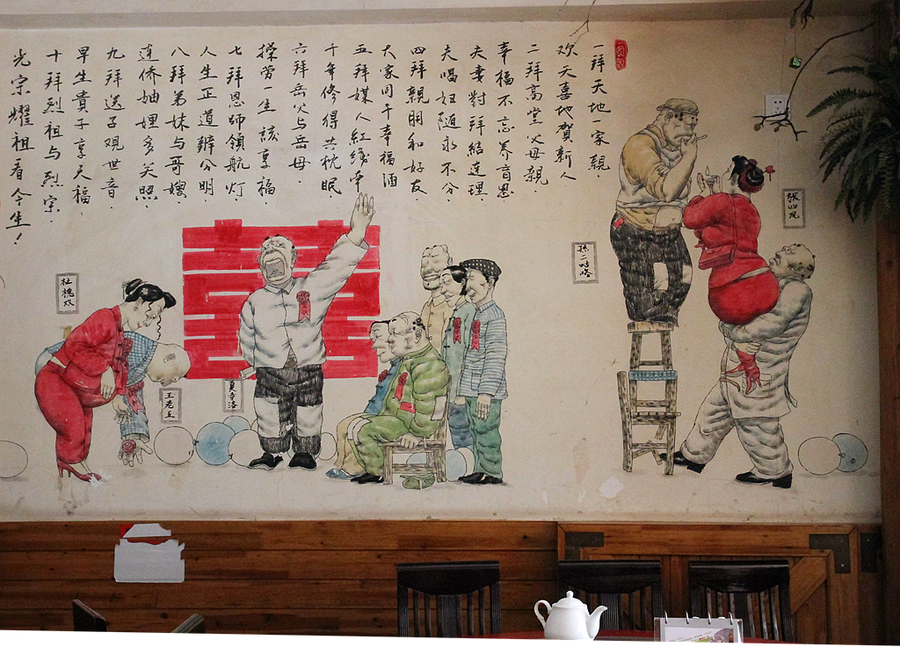 一拜天地一家親
欢天喜地賀新人
二拜高堂父母親
幸福不忘养育恩
夫妻對拜結連理.
夫唱妇随永不分
四拜親朋和好友.
大家同干幸福酒
五拜媒人红线牵
千年修得共枕眠.
六拜岳父与岳母.
操劳一生該享福
七拜恩师領航灯.
人生正道辨分明.
八拜弟妹与哥嫂.
连侨妯娌多关照.
九拜送子观世音
早生貴子享天福.
十拜烈祖与烈宗.
光宗耀祖看今生!
孙二咕咯
王老五